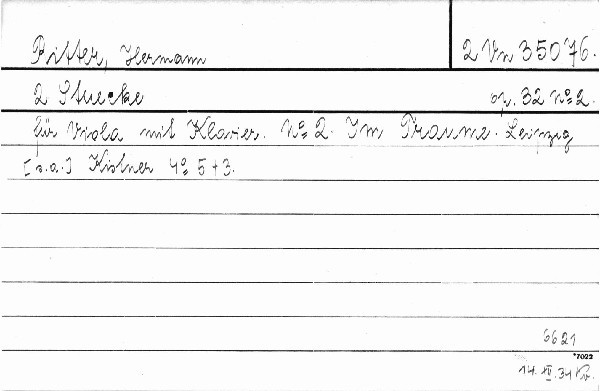 Ritter, Hermann 2 Vn 35076.
2 Stuecke op. 32 No 2.
für Viola mit Klavier. No 2. Im Traume. Leipzig
[s.a.] Kistner 4o 5+3.
6621
*7022
14. 31